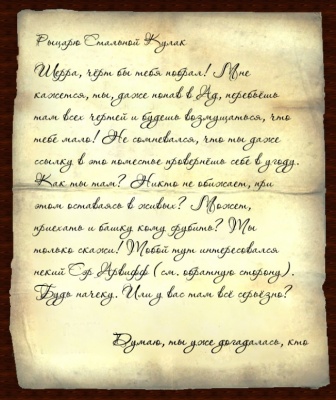 Рыцарю Стальной Кулак
Шерра, чёрт бы тебя побрал! Мне
кажется, ты, даже попав в Ад, перебьёшь
там всех чертей и будешь возмущаться, что
тебе мало! Не сомневался, что ты даже
ссылку в это поместье провернёшь себе в угоду.
Как ты там? Никто не обижает, при
этом оставаясь в живых? Может,
приехать и башку кому срубить? Ты
только скажи! Тобой тут интересовался
некий Сэр Арвифф (см. обратную сторону).
Будь начеку. Или у вас там всё серьёзно?
Думаю, ты уже догадалась, кто